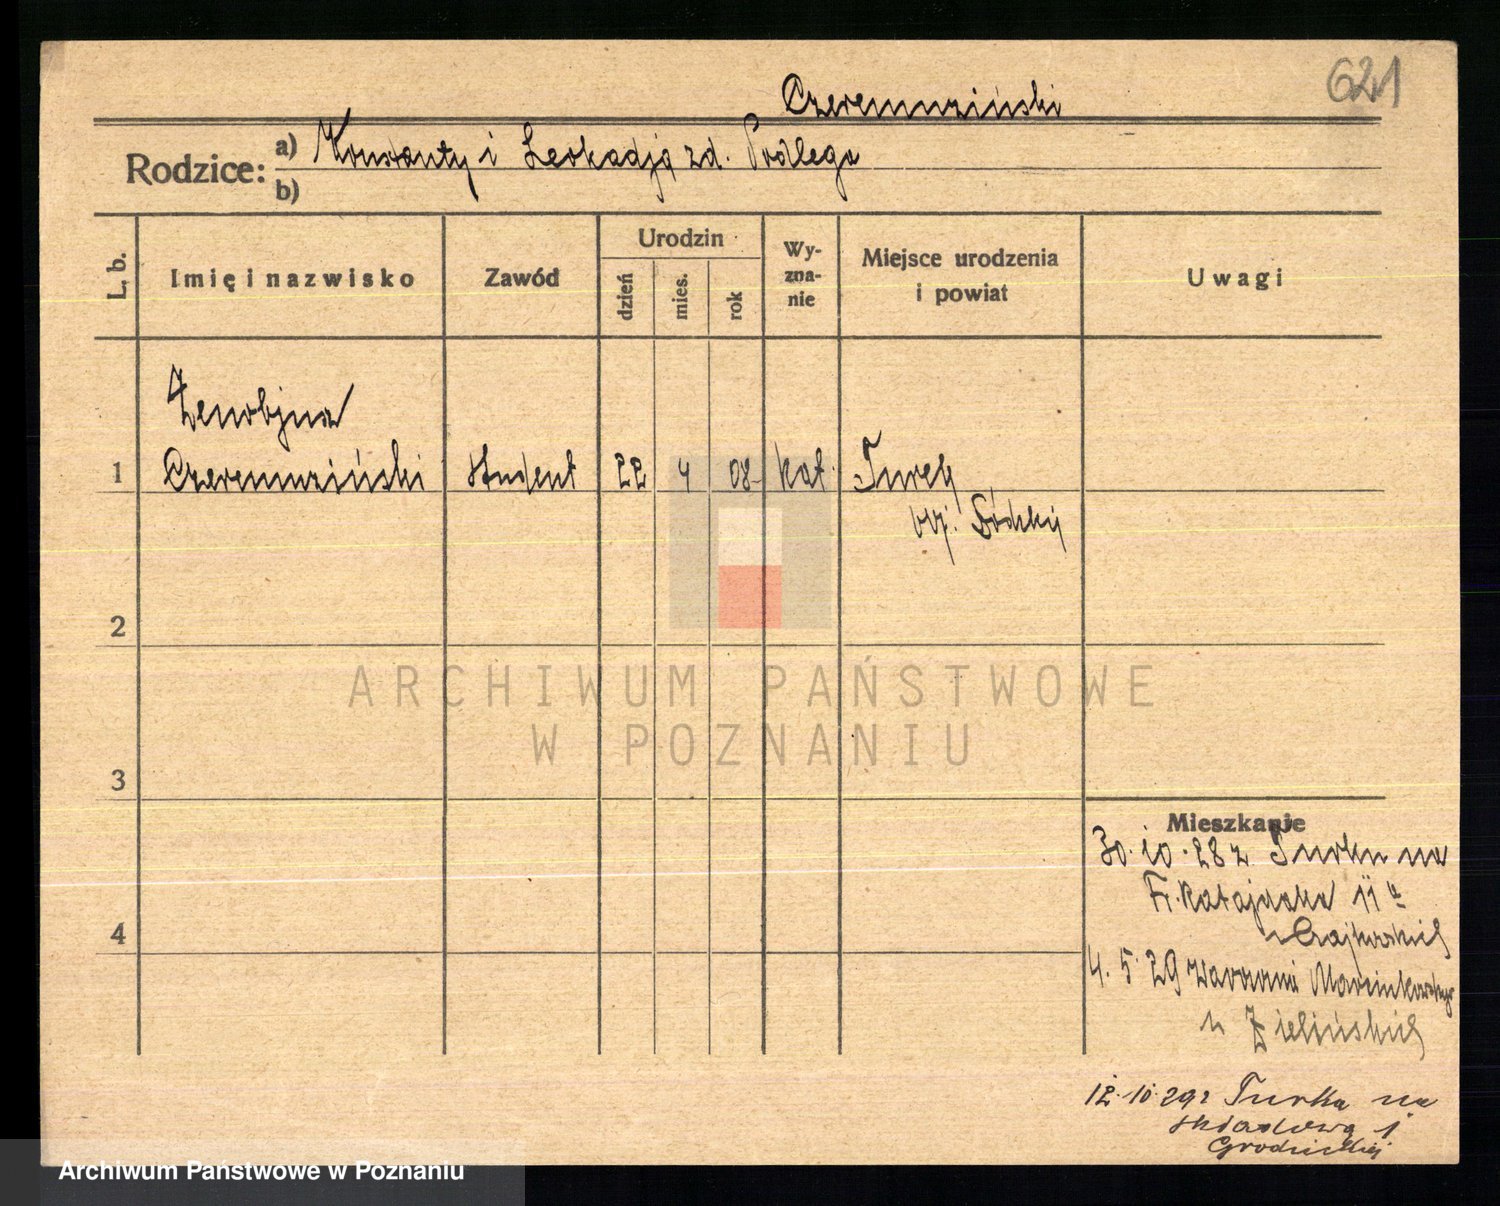 621
Czeremurziński
Rodzice: a) Konstanty i Leokadja zd. Podlega
b)
L. b.
Imię i nazwisko
Zawód
Urodzin
dzień
mies.
rok
Wy-
zna-
nie
Miejsce urodzenia
i powiat
Uwagi
Zenobjusz
1 Czeremurziński student 22 4 08 kat. Turek
wj. Łódzkij
2
ARCHIWUM PAŃSTWOWE
W POZNANIU
3
Mieszkanie
30.10.28 z Turku na
Fr. Ratajczaka 11a
u Czajkowskich
4
4.5.29 Marcinkowskiego
u Zielińskich
12.10.29 z Turka na
składową 1
Grodzickiej
Archiwum Państwowe w Poznaniu